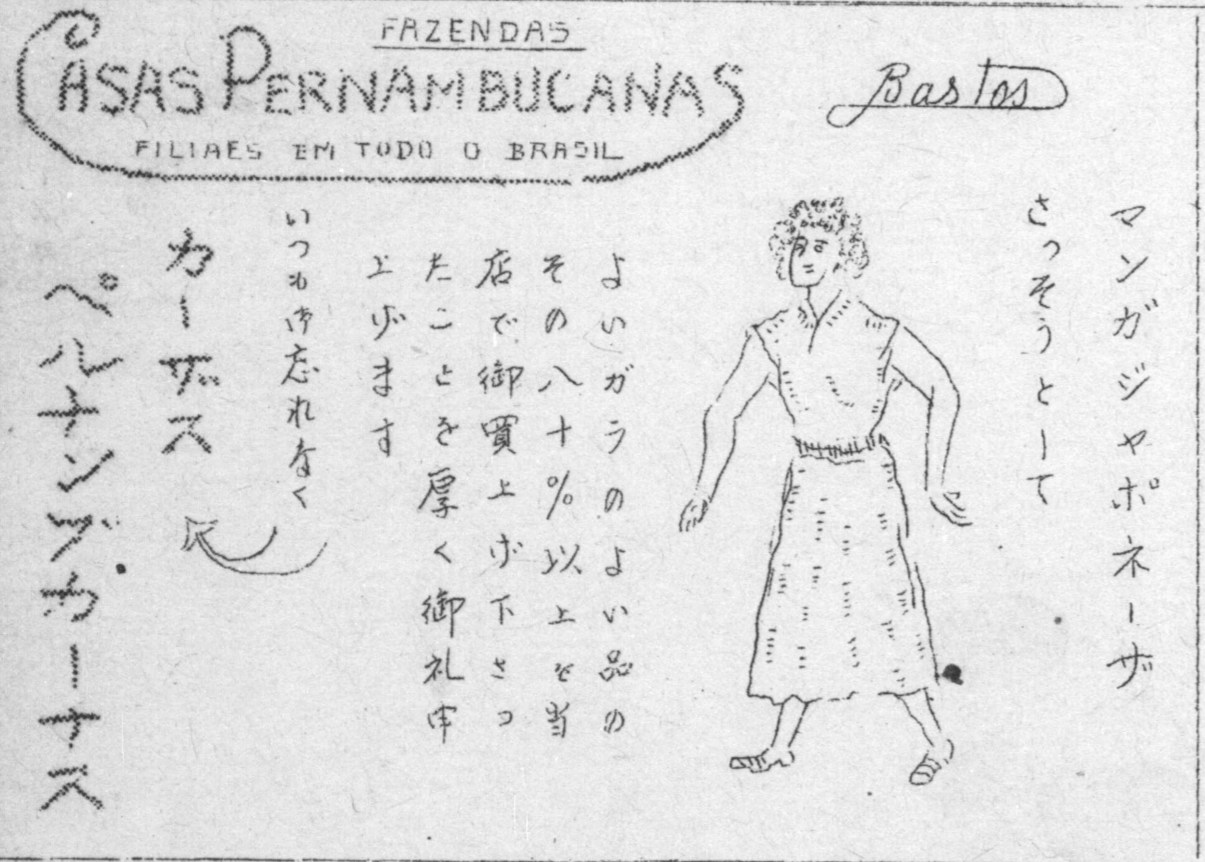 FAZENDAS
CASAS PERNAMBUCANAS
FILIAES EM TODO O BRASIL
Bastos
マンガジャポネーザ
さっそうとーて
よいガラのよい品の
その八十%以上を当
店で御買上げ下さっ
たことを厚く御礼申
上げます
いつも御忘れなく
カーザス
ペルナンブカーナス